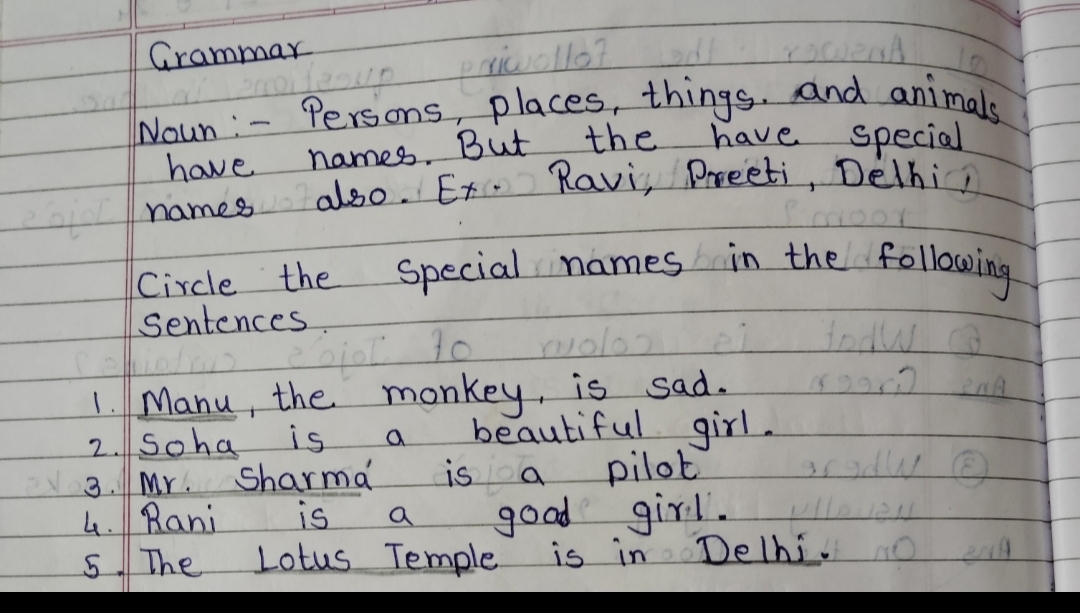 Grammar
Noun :- Persons, places, things. and animals
have names. But the have special
names also. Ex. Ravi, Preeti, Delhi,
Circle the special names in the following
Sentences.
1. Manu, the monkey, is sad.
2. Soha is a beautiful girl.
3. Mr. Sharma is a pilot
4. Rani is a good girl.
5. The Lotus Temple is in Delhi.